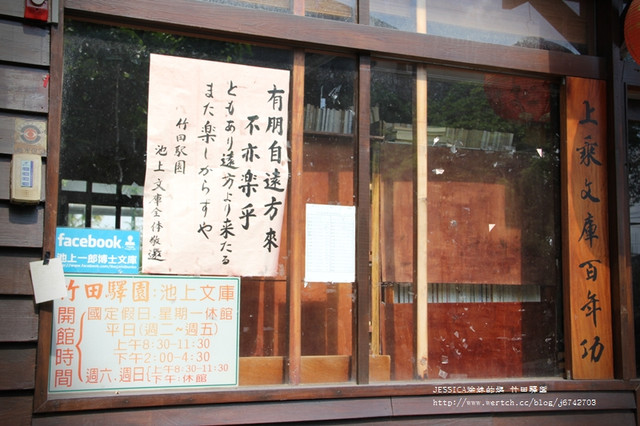 有朋自遠方來
不亦楽乎
ともあり遠方より来たる
また楽しからずや
竹田駅園
池上文庫全体敬邀
上乘文庫百年功
facebook
池上一郎博士文庫
竹田驛園:池上文庫
開館時間
國定假日.星期一休館
平日(週二~週五)
上午8:30-11:30
下午2:00-4:30
週六.週日(上午8:30-11:30
下午:休館
http://www.wertch.cc/blog/j6742703